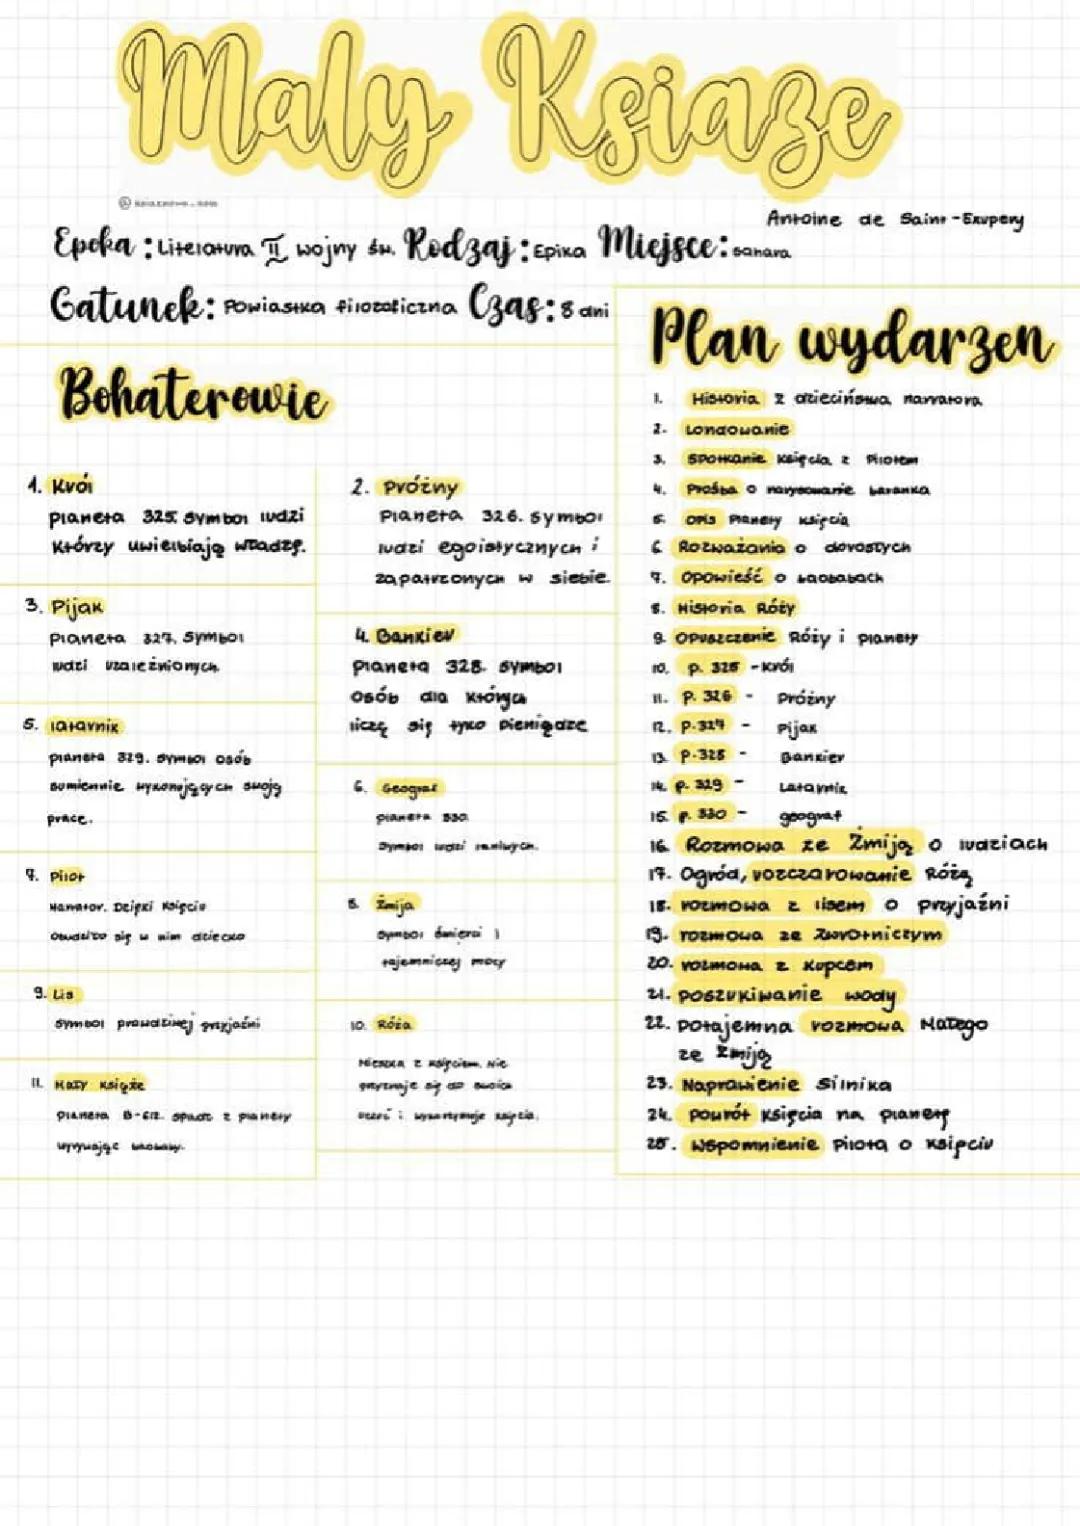 Maly Ksiaze
Antoine de Saint-Exupery
Epoka: Literatura II wojny św. Rodzaj: Epika Miejsce: Sahara
Gatunek: Powiastka filozoficzna Czas: 8 dni
Bohaterowie
1. Król
planeta 325. symbol ludzi
którzy uwielbiają władzę.
2. Próżny
Planeta 326. symbol
ludzi egoistycznych i
zapatrzonych w siebie.
3. Pijak
planeta 327. symbol
ludzi uzależnionych
4. Bankier
planeta 328. symbol
osób dla których
liczą się tyko pieniądze
5. latarnik
planeta 329. symbol osób
sumiennie wykonujących swoją
pracę.
6. Geograf
planeta 330.
symbol ludzi
7. Pilot
narrator. Dzięki księciu
obudziło się w nim dziecko
8. Żmija
symbol śmierci i
tajemniczej mocy
9. Lis
symbol prawdziwej przyjaźni
10. Róża
Mieszka z księciem. Nie
przyznaje się do swoich
uczuć i wykorzystuje księcia.
11. Mały Książę
planeta B-612. opuść z planety
wyrywając baobaby.
Plan wydarzen
1. Historia z dzieciństwa narratora
2. Londowanie
3. Spotkanie księcia z Pilotem
4. Prośba o narysowanie baranka
5. opis Planety księcia
6 Rozważania o dorosłych
7. Opowieść o baobabach
8. Historia Róży
9. Opuszczenie Róży i planety
10. p. 325 - król
11. p. 326 - Próżny
12. p. 327 - Pijak
13. p. 328 - Bankier
14. p. 329 - Latarnik
15. p. 330 - geograf
16. Rozmowa ze Żmiją o ludziach
17. Ogród, rozczarowanie Różą
18. rozmowa z lisem o przyjaźni
19. rozmowa ze Zwrotniczym
20. rozmowa z kupcem
21. poszukiwanie wody
22. potajemna rozmowa Małego
ze żmiją
23. Naprawienie Silnika
24. powrót księcia na planetę
25. wspomnienie Pilota o księciu